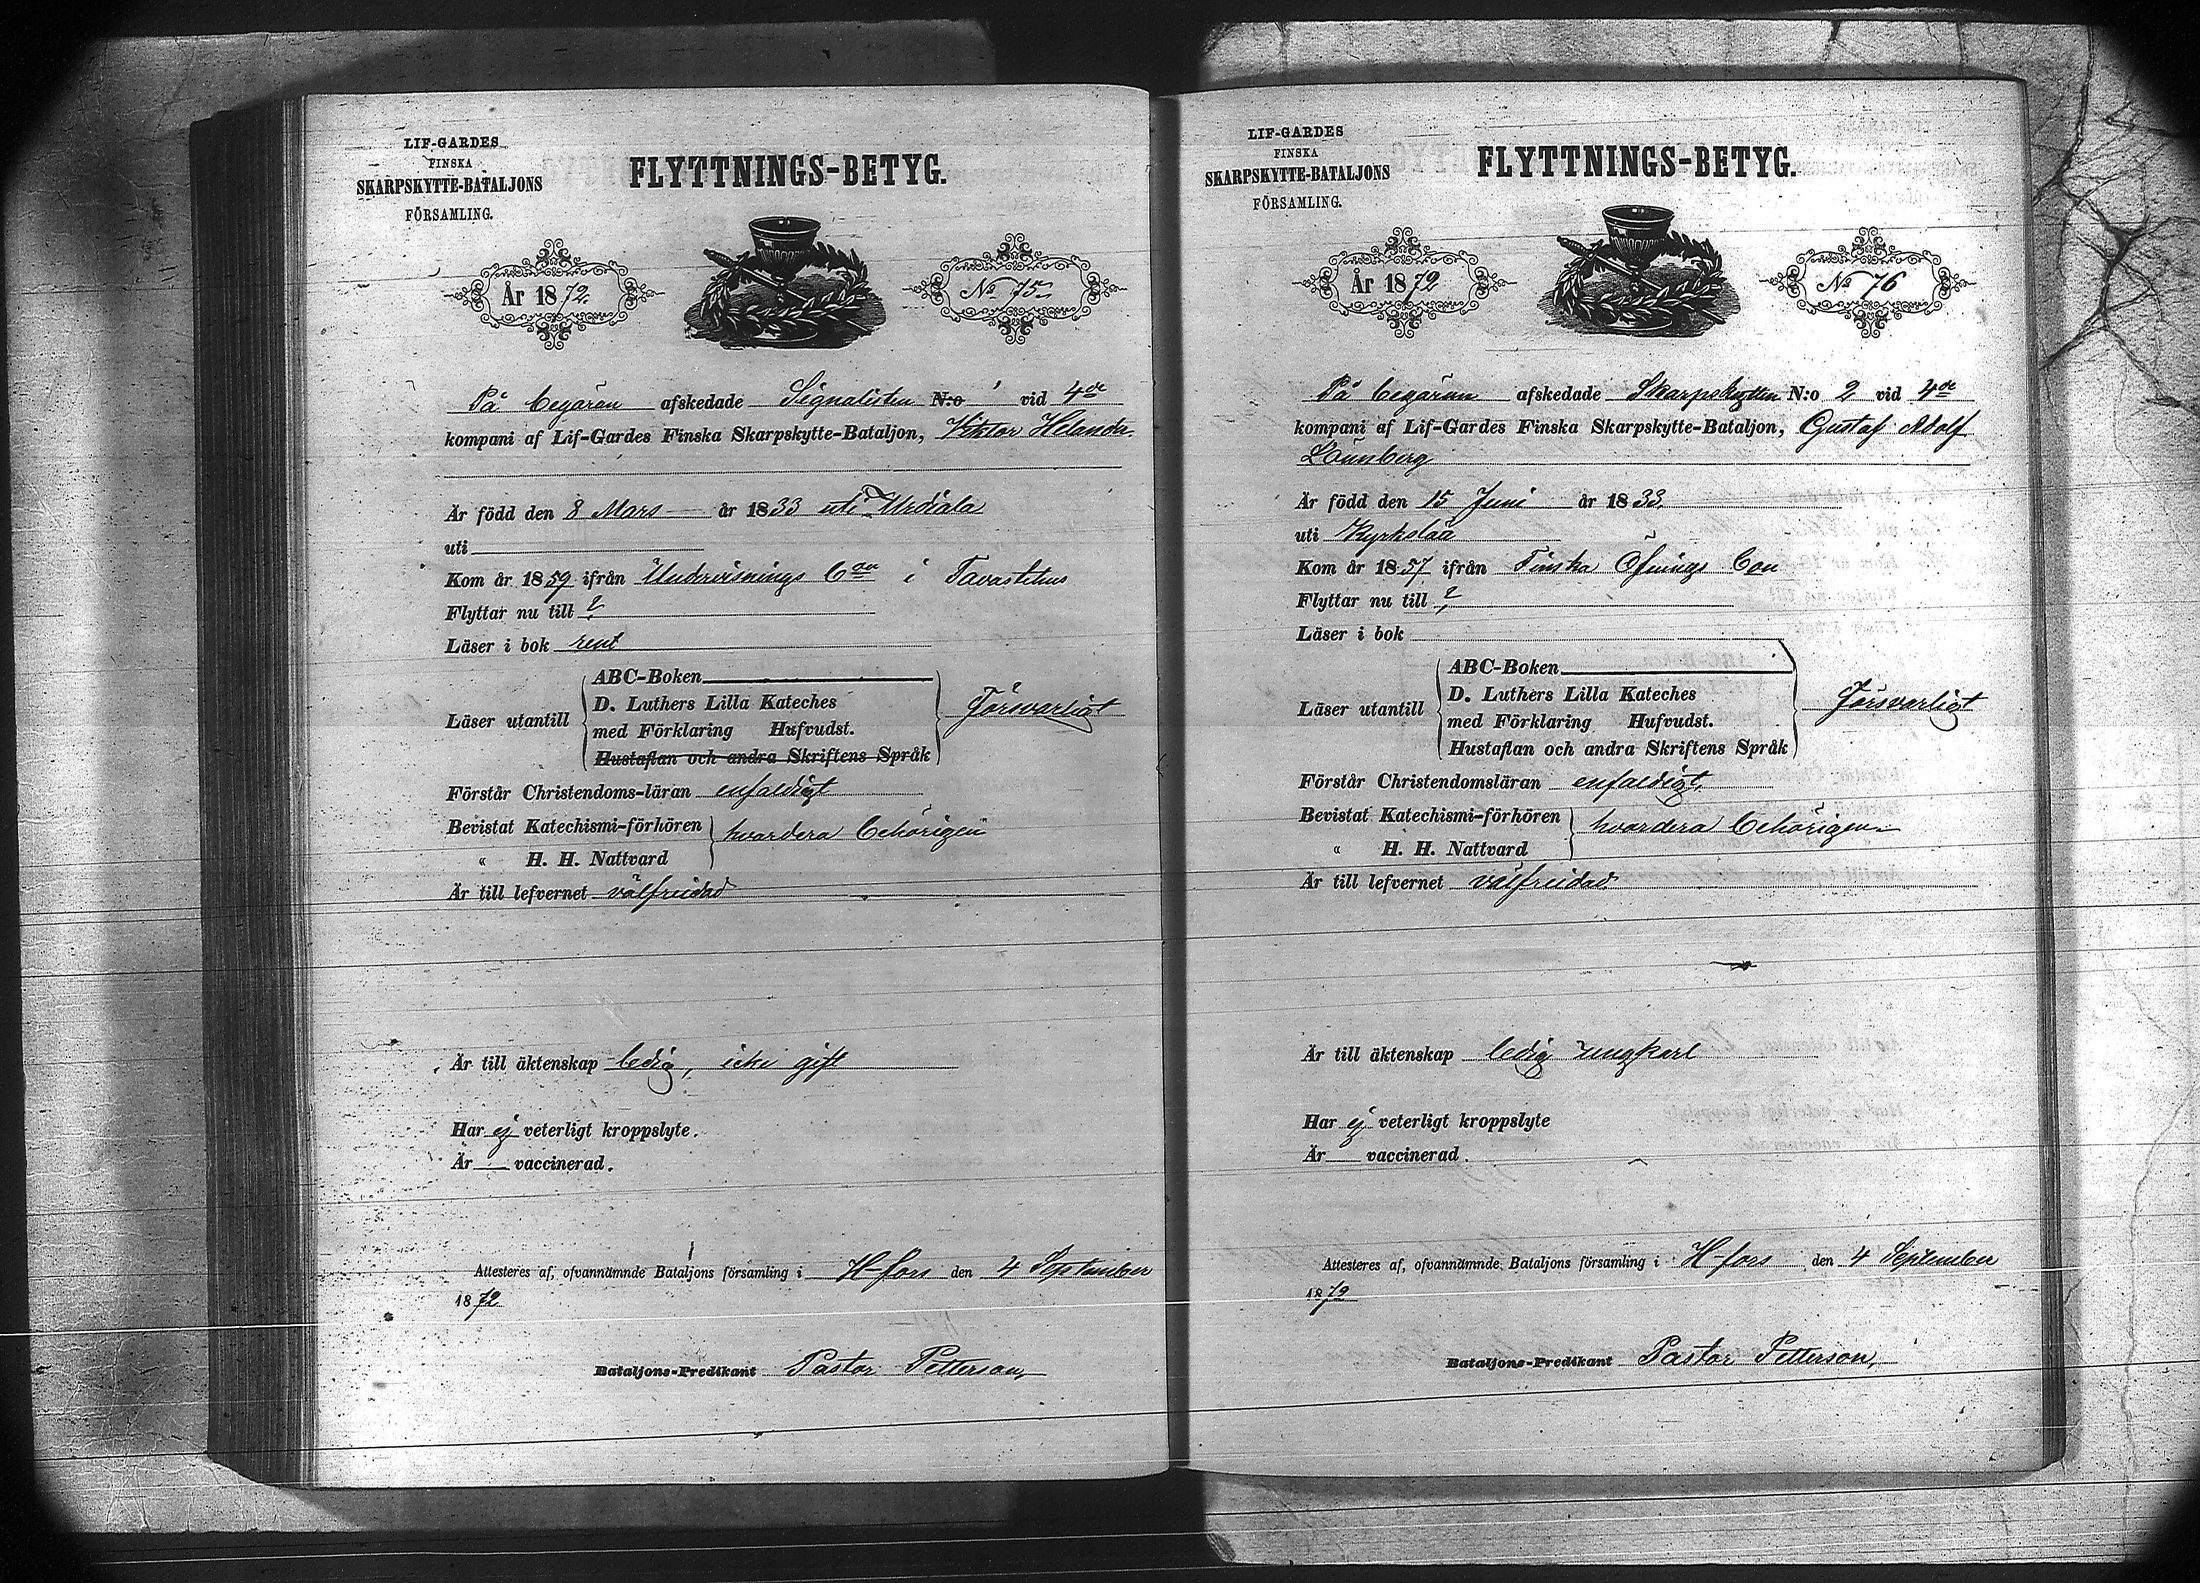 LIF-GARDES
FINSKA
SKARPSKYTTE-BATALJONS
FÖRSAMLING.
FLYTTNINGS-BETYG.
År 1872.
No 75
På begäran afskedade Signalisten N:o vid 4de
kompani af Lif-Gardes Finska Skarpskytte-Bataljon, Viktor
Är född den 8 Mars år 1833 uti Urdiala
uti
Kom år 1859 ifrån Undervisnings Con i Tavastehus
Flyttar nu till ?
Läser i bok rent
Läser utantill
ABC-Boken
D. Luthers Lilla Kateches
med Förklaring Hufvudst.
Hustaflan och andra Skriftens Språk
Försvarligt
Förstår Christendoms-läran enfaldigt
Bevistat Katechismi-förhören
" H. H. Nattvard
hvardera behörigen
Är till lefvernet välfreidad
Är till äktenskap ledig, icke gift
Har ej veterligt kroppslyte.
Är vaccinerad.
Attesteres af, ofvannämnde Bataljons församling i H-fors den 4 September
1872
Bataljons-Predikant Pastor Petterson,
LIF-GARDES
FINSKA
SKARPSKYTTE-BATALJONS
FÖRSAMLING.
FLYTTNINGS-BETYG.
År 1872
No 76
På begäran afskedade Skarpskytten N:o 2 vid 4de
kompani af Lif-Gardes Finska Skarpskytte-Bataljon, Gustaf Adolf
Lönnberg
Är född den 15 Juni år 1833.
uti Kyrkslätt
Kom år 1857 ifrån Finska Öfnings Con
Flyttar nu till ?
Läser i bok
Läser utantill
ABC-Boken
D. Luthers Lilla Kateches
med Förklaring Hufvudst.
Hustaflan och andra Skriftens Språk
Försvarligt
Förstår Christendomsläran enfaldigt.
Bevistat Katechismi-förhören
" H. H. Nattvard
hvardera behörigen
Är till lefvernet välfreidad
Är till äktenskap ledig ungkarl
Har ej veterligt kroppslyte
Är vaccinerad.
Attesteres af, ofvannämnde Bataljons församling i H-fors den 4 September
1872
Bataljons-Predikant Pastor Petterson,